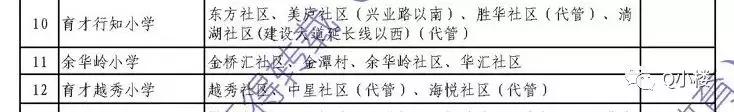 10 育才行知小学 东方社区、美庐社区（兴业路以南）、胜华社区（代管）、淌
湖社区(建设大道延长线以西)（代管）
11 余华岭小学 金桥汇社区、金潭村、余华岭社区、华汇社区
12 育才越秀小学 越秀社区、中星社区（代管）、海悦社区（代管）
Q小楼
得转载